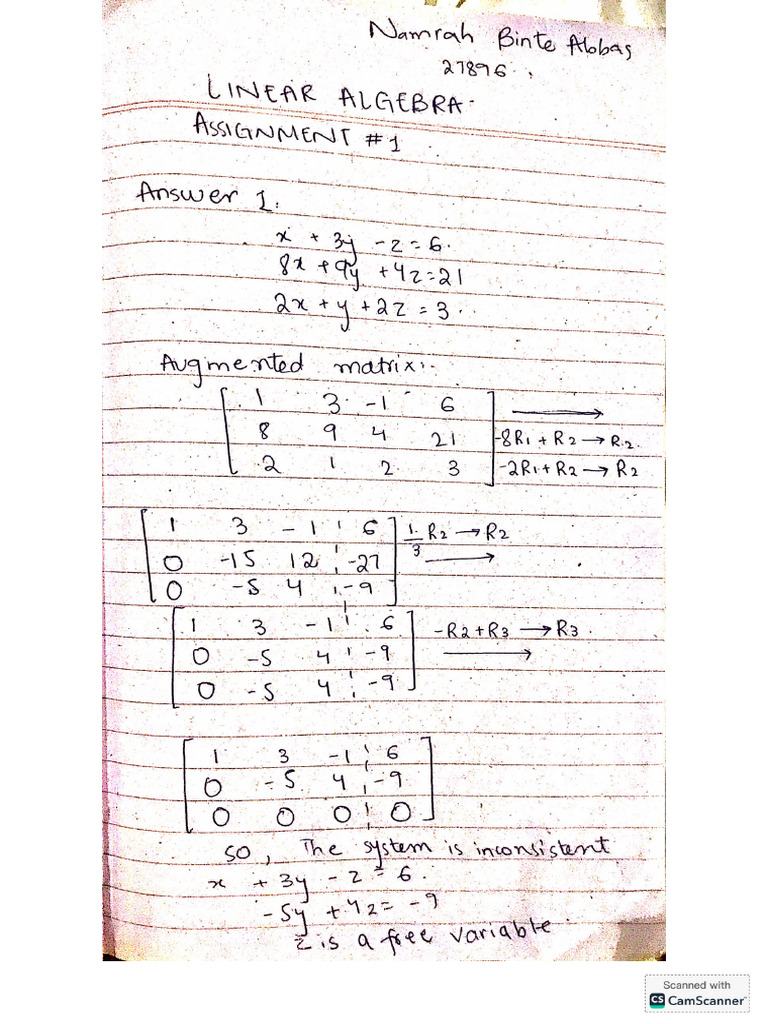 Namrah Binte Abbas
27896.
LINEAR ALGEBRA.
ASSIGNMENT #1
Answer 1:
x + 3y - z = 6.
8x + 9y + 4z = 21
2x + y + 2z = 3.
Augmented matrix:-
[ 1 3 -1 6 ] →
[ 8 9 4 21 ] -8R1 + R2 → R2.
[ 2 1 2 3 ] -2R1 + R2 → R2
[ 1 3 -1 ¦ 6 ] 1/3 R2 → R2
[ 0 -15 12 ¦ -27 ] →
[ 0 -5 4 ¦ -9 ]
[ 1 3 -1 ¦ 6 ] -R2 + R3 → R3.
[ 0 -5 4 ¦ -9 ] →
[ 0 -5 4 ¦ -9 ]
[ 1 3 -1 ¦ 6 ]
[ 0 -5 4 ¦ -9 ]
[ 0 0 0 ¦ 0 ]
SO, The system is inconsistent
x + 3y - z = 6.
-5y + 4z = -9
z is a free variable.
Scanned with
CS CamScanner